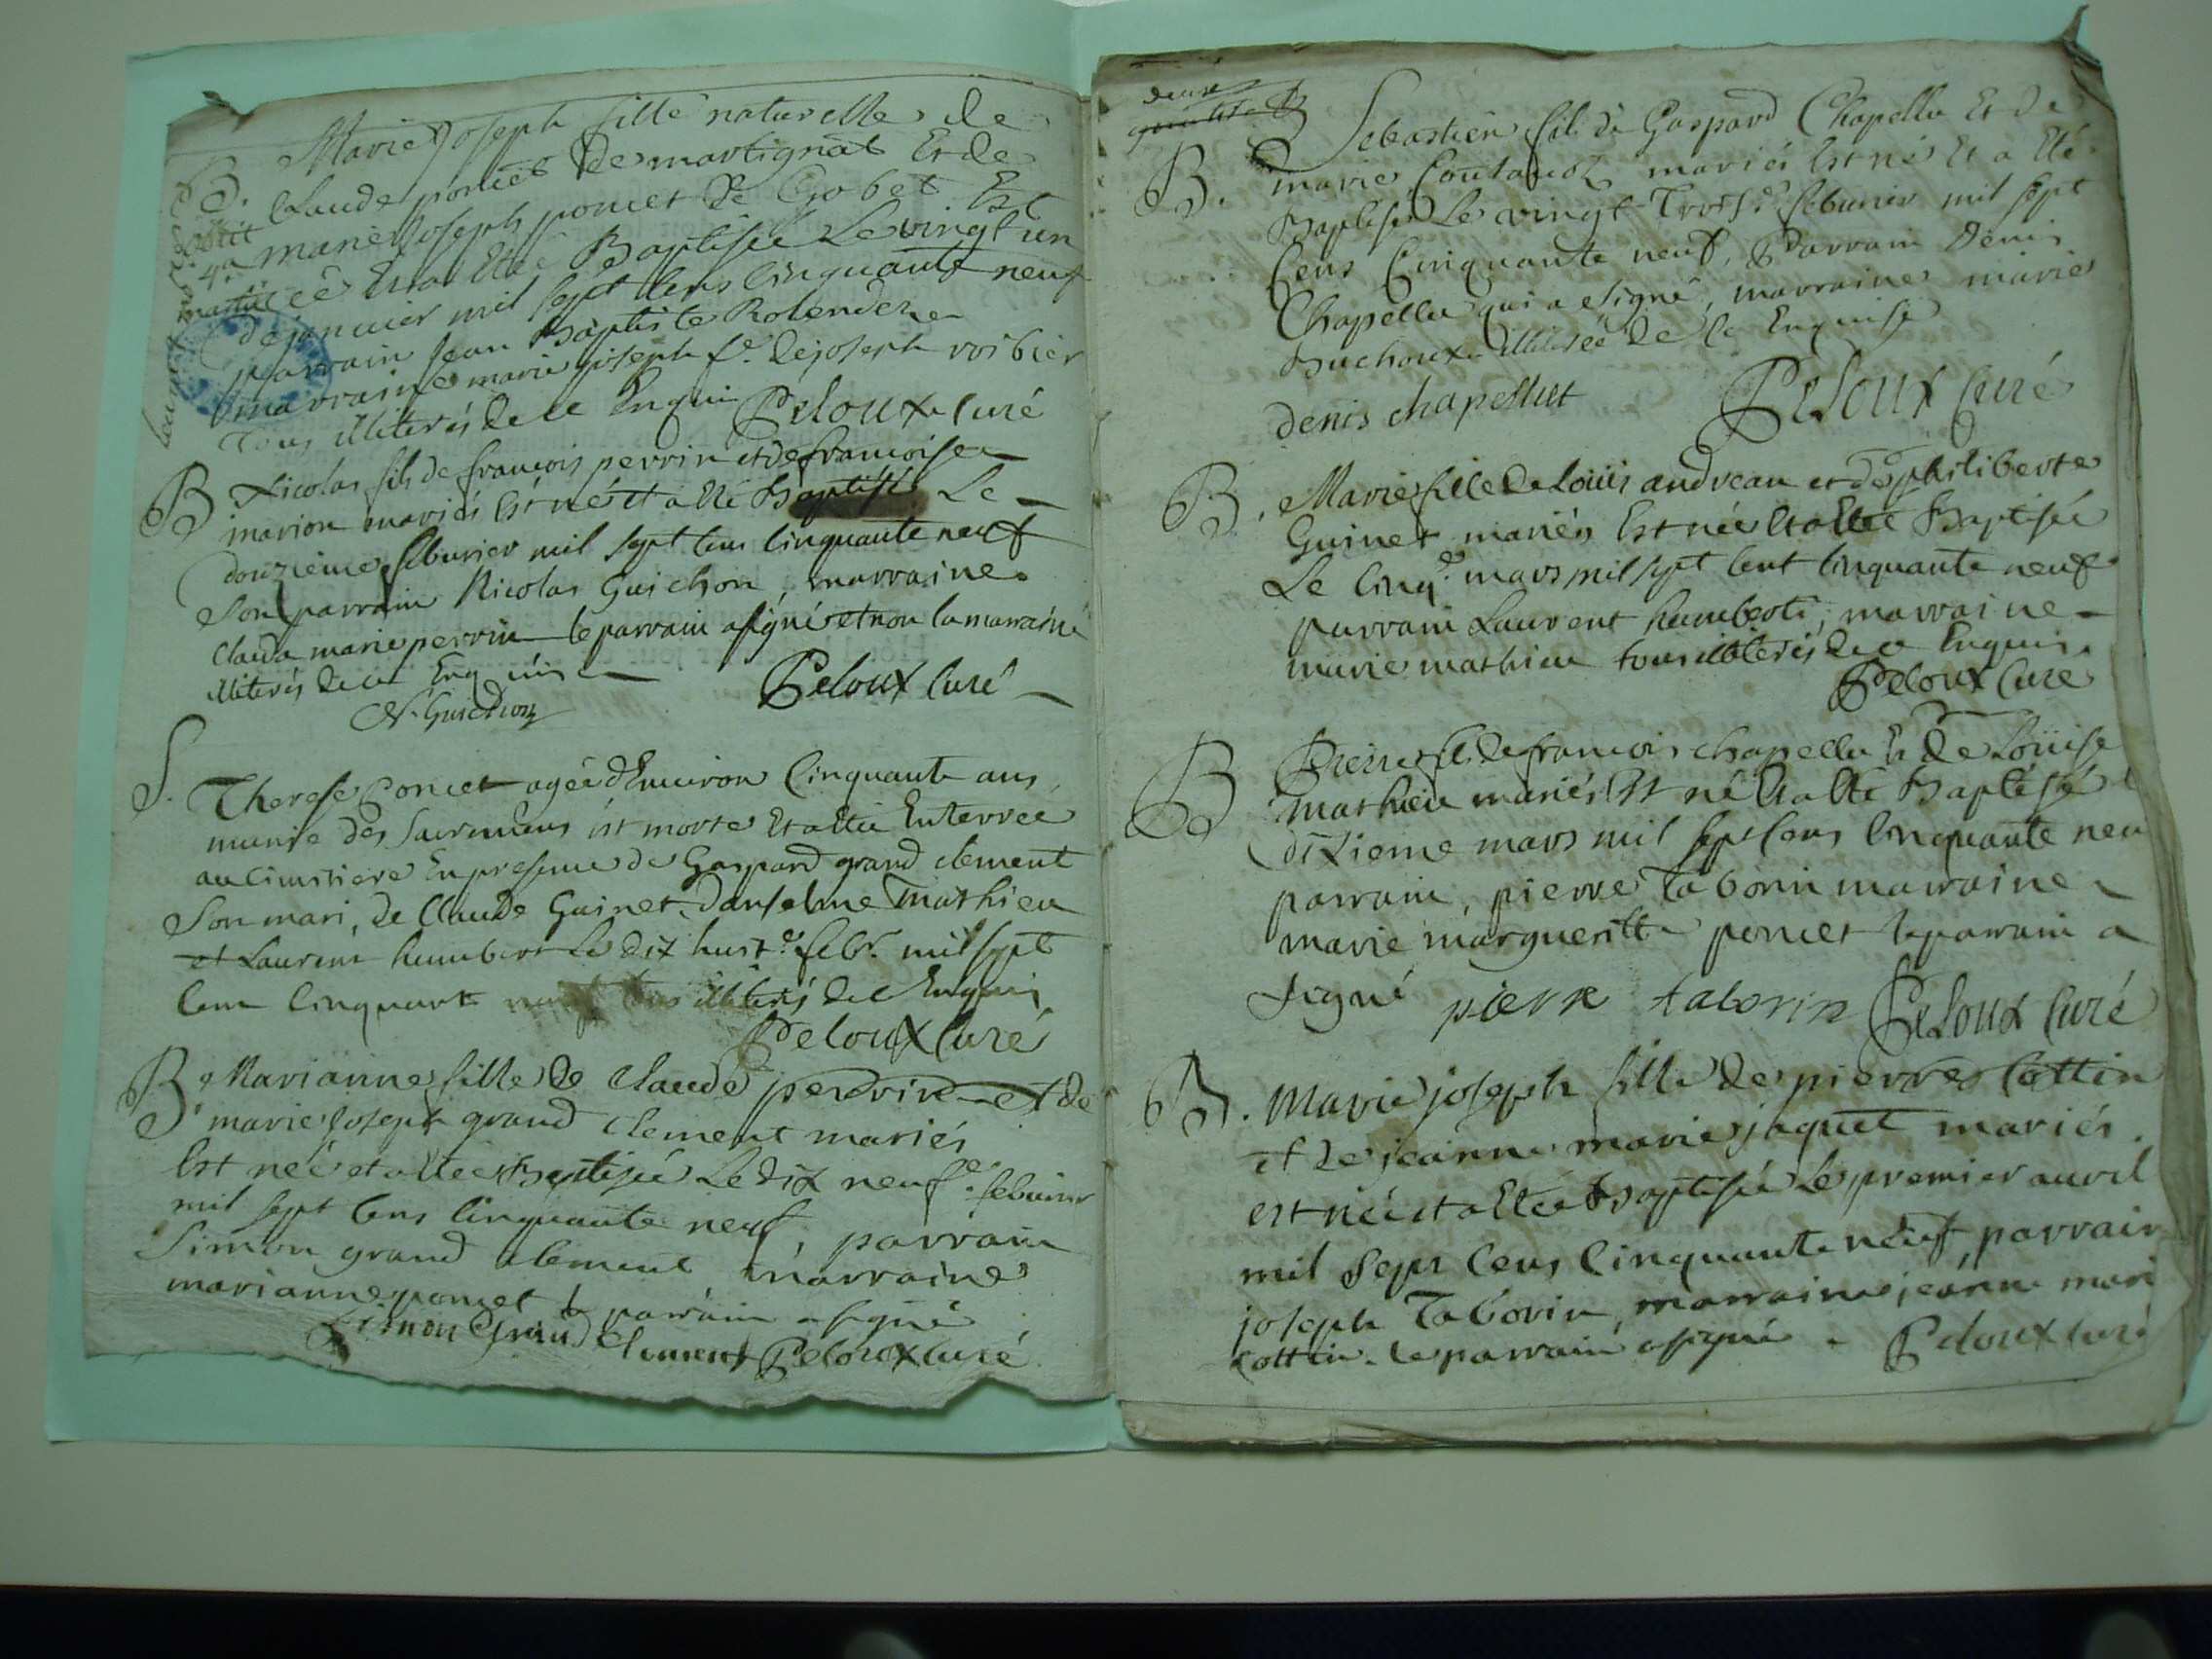 B. Marie Joseph fille naturelle de
Claude poncet de martignat Et de
marie Joseph poncet de Crobet Est
née Et a Eté Baptisée Le vingt un
de januier mil sept cens cinquante neuf
parrain Jean Baptiste Rolender
marraine marie joseph fe. de joseph voibier
Tous illiterés de ce Enquis Peloux Curé
B Nicolas fils de francois perrin et de francoise
marion mariés Est né Et a Eté Baptisé Le
douzieme feburier mil sept cens cinquante neuf
Son parrain Nicolas Guichon, marraine
Clauda marie perrin le parrain a signé et non la marraine
illiterés de ce Enquis Peloux Curé
N. Guichon
S. Therese Poncet agée d'Enuiron Cinquante ans
munie des Sacremens est morte Et a Eté Enterrée
au Cimitiere En presence de Gaspard grand clement
Son mari, de Claude Guinet, d'anselme Mathieu
et Laurent humbert Le dix huit.e febr. mil sept
cens Cinquante neuf tous illiterés de ce Enquis
Peloux Curé
B. Marianne fille de Claude perrin et de
marie Joseph grand Clement mariés
Est née et a Etée Baptisée Le dix neuf.e feburier
mil sept cens cinquante neuf, parrain
Simon grand clement, marraine
marianne poncet le parrain a signé
Simon Grand Clement Peloux Curé
deux
B. Sebastien fils de Gaspard Chapellu Et de
marie Coutanoz mariés Est né Et a Eté
Baptisé Le vingt Trois.e feburier mil sept
Cens Cinquante neuf, Parrain Denis
Chapellu qui a signé, marraine marie
Buchoux illiterée de ce Enquise
denis chapellut Peloux Curé
B. Marie fille de Loüis andrean et de philiberte
Guinet mariés Est née Et a Eté Baptisée
Le Cinq.e mars mil sept cent cinquante neuf
parrain Laurent humbert, marraine
marie mathieu tous illiterés de ce Enquis
Peloux Curé
B Pierre fils de francois chapellu Et de Loüise
Mathieu mariés Est né Et a Eté Baptisé
dixieme mars mil sept cens cinquante neu
parrain, pierre Taborin marraine
marie margueritte poncet le parrain a
signé pierre taborin Peloux Curé
B. Marie joseph fille de pierre Cottin
et de jeanne marie jaquet mariés
est née et a Etée Baptisée Le premier auril
mil sept cens cinquante neuf, parrain
joseph Taborin, marraine jeanne mari
Cottin. le parrain a signé. Peloux Curé